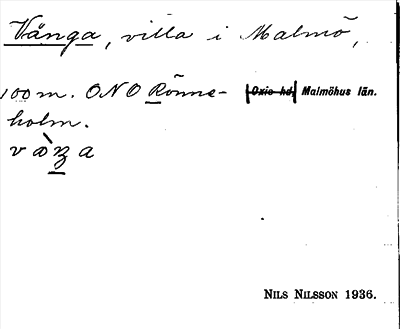 Vånga, villa i Malmö,
100 m. ONO Rönne- Oxie hd, Malmöhus län.
holm.
NILS NILSSON 1936.